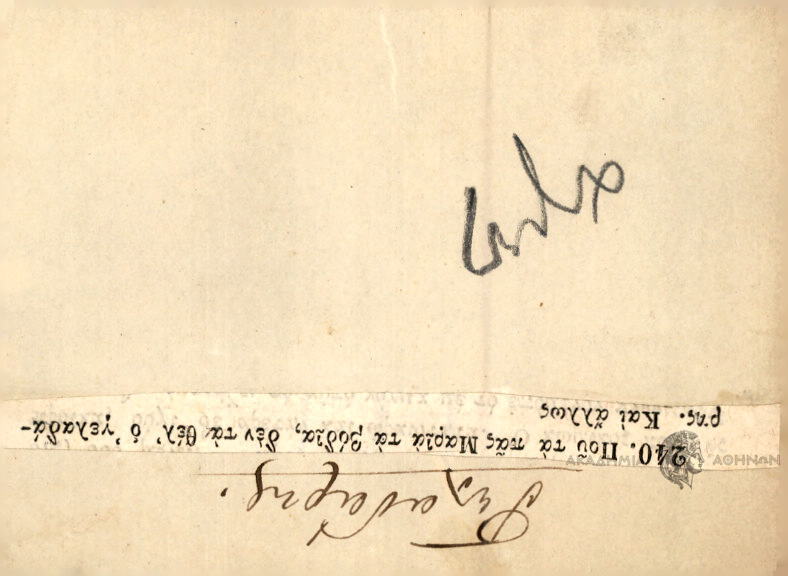 Γελαδάρης.
240. Ποῦ τὰ πᾶς Μαριὰ τὰ βόδια, δὲν τὰ θέλ' ὁ γελαδά-
ρης. Καὶ ἄλλως
ΑΚΑΔΗΜΙΑ ΑΘΗΝΩΝ